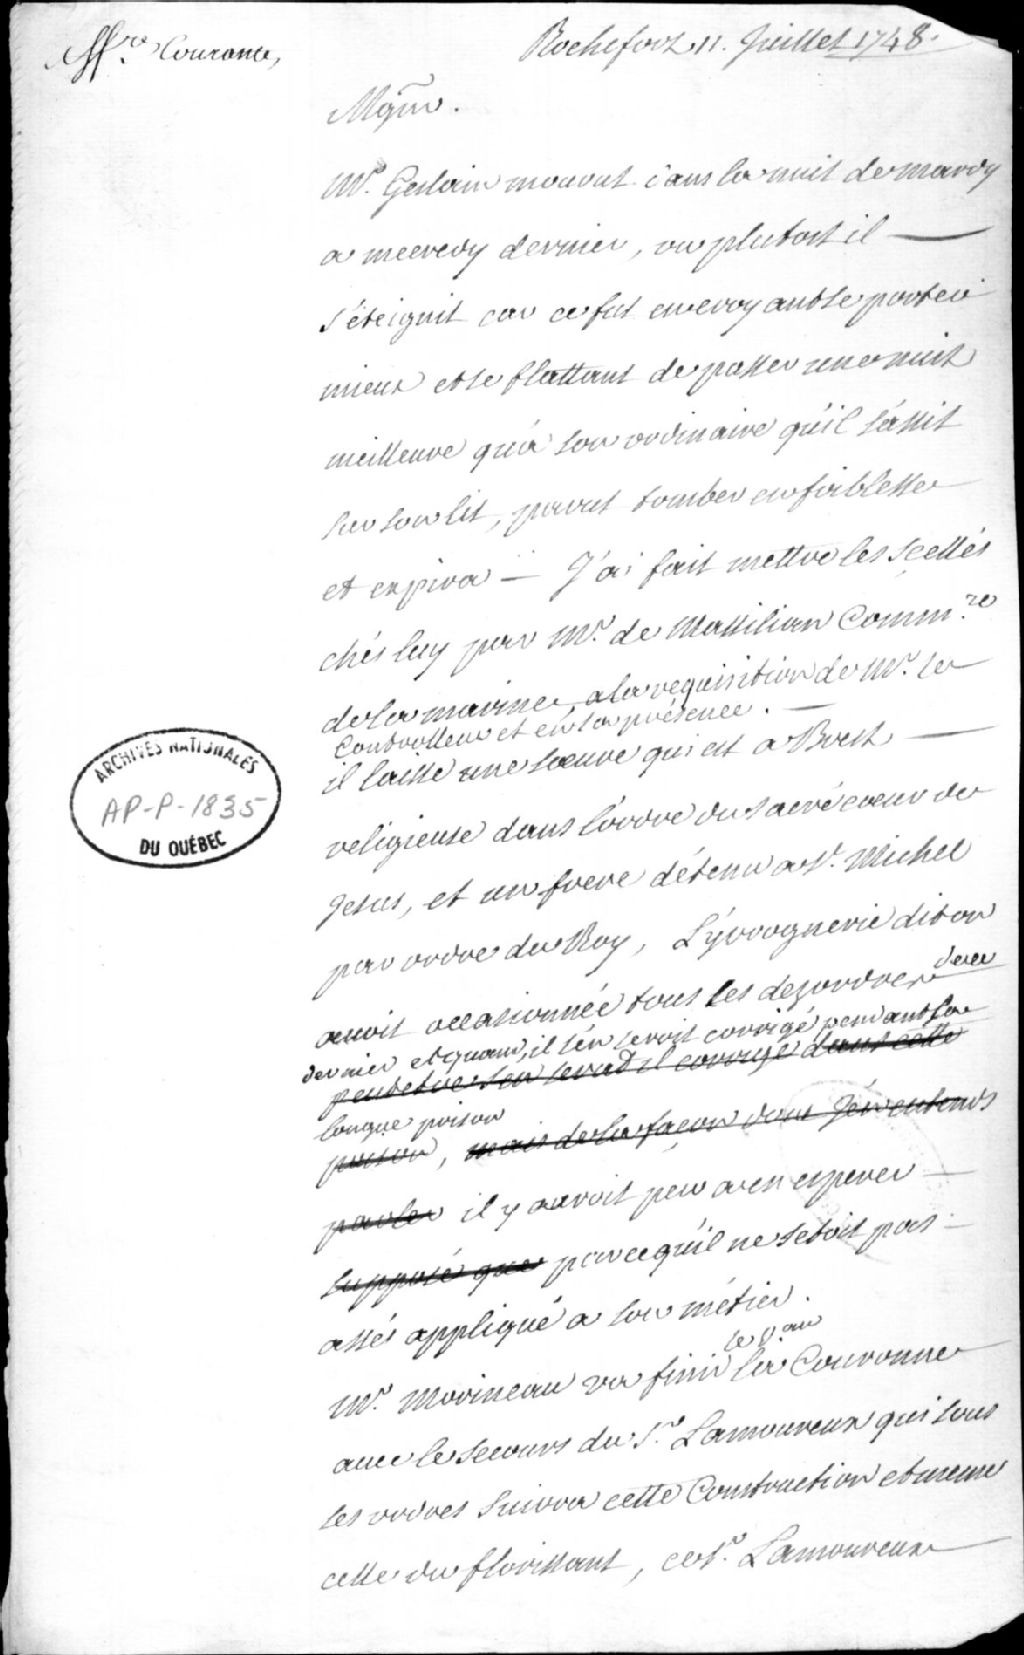 Rochefort 11. Juillet 1748.
Couronne,
Mgnr.
Mr. Geslain mourut dans la nuit de mardy
a mecredy dernier, ou plutost il
s'éteignit car ce fut en croyant se porter
mieux et se flattant de passer une nuit
meilleure qu'a son ordinaire qu'il s'assit
sur son lit, parut tomber en foiblesse
et expira — J'ai fait mettre les scellés
chés luy par Mr. de Massilian Comm.re
de la marine a la requisition de Mr. le
Controlleur et en sa présence. —
il laisse une soeure qui est a Brest —
religieuse dans l'ordre du sacré coeur de
Jesus, et un frere détenu a St. Michel
par ordre du Roy, L'yvrognerie dit on
avoit occasionnée tous les dezordres de ce
dernier et quand il s'en seroit corrigé pendant sa
peutetre s'en seroit il corrigé dans cette
longue prison
prison, mais de la façon dont j'en entends
parler il y auroit peu a en esperer —
supposé que parce qu'il ne s'etoit pas
assés appliqué a son métier.
le v.au
Mr. Morineau va finir la Couronne
avec le secours du Sr. Lamoureux qui sous
ses ordres suivra cette Construction et meme
celle du florissant, ce Sr. Lamoureux
ARCHIVES NATIONALES
AP-P-1835
DU QUÉBEC